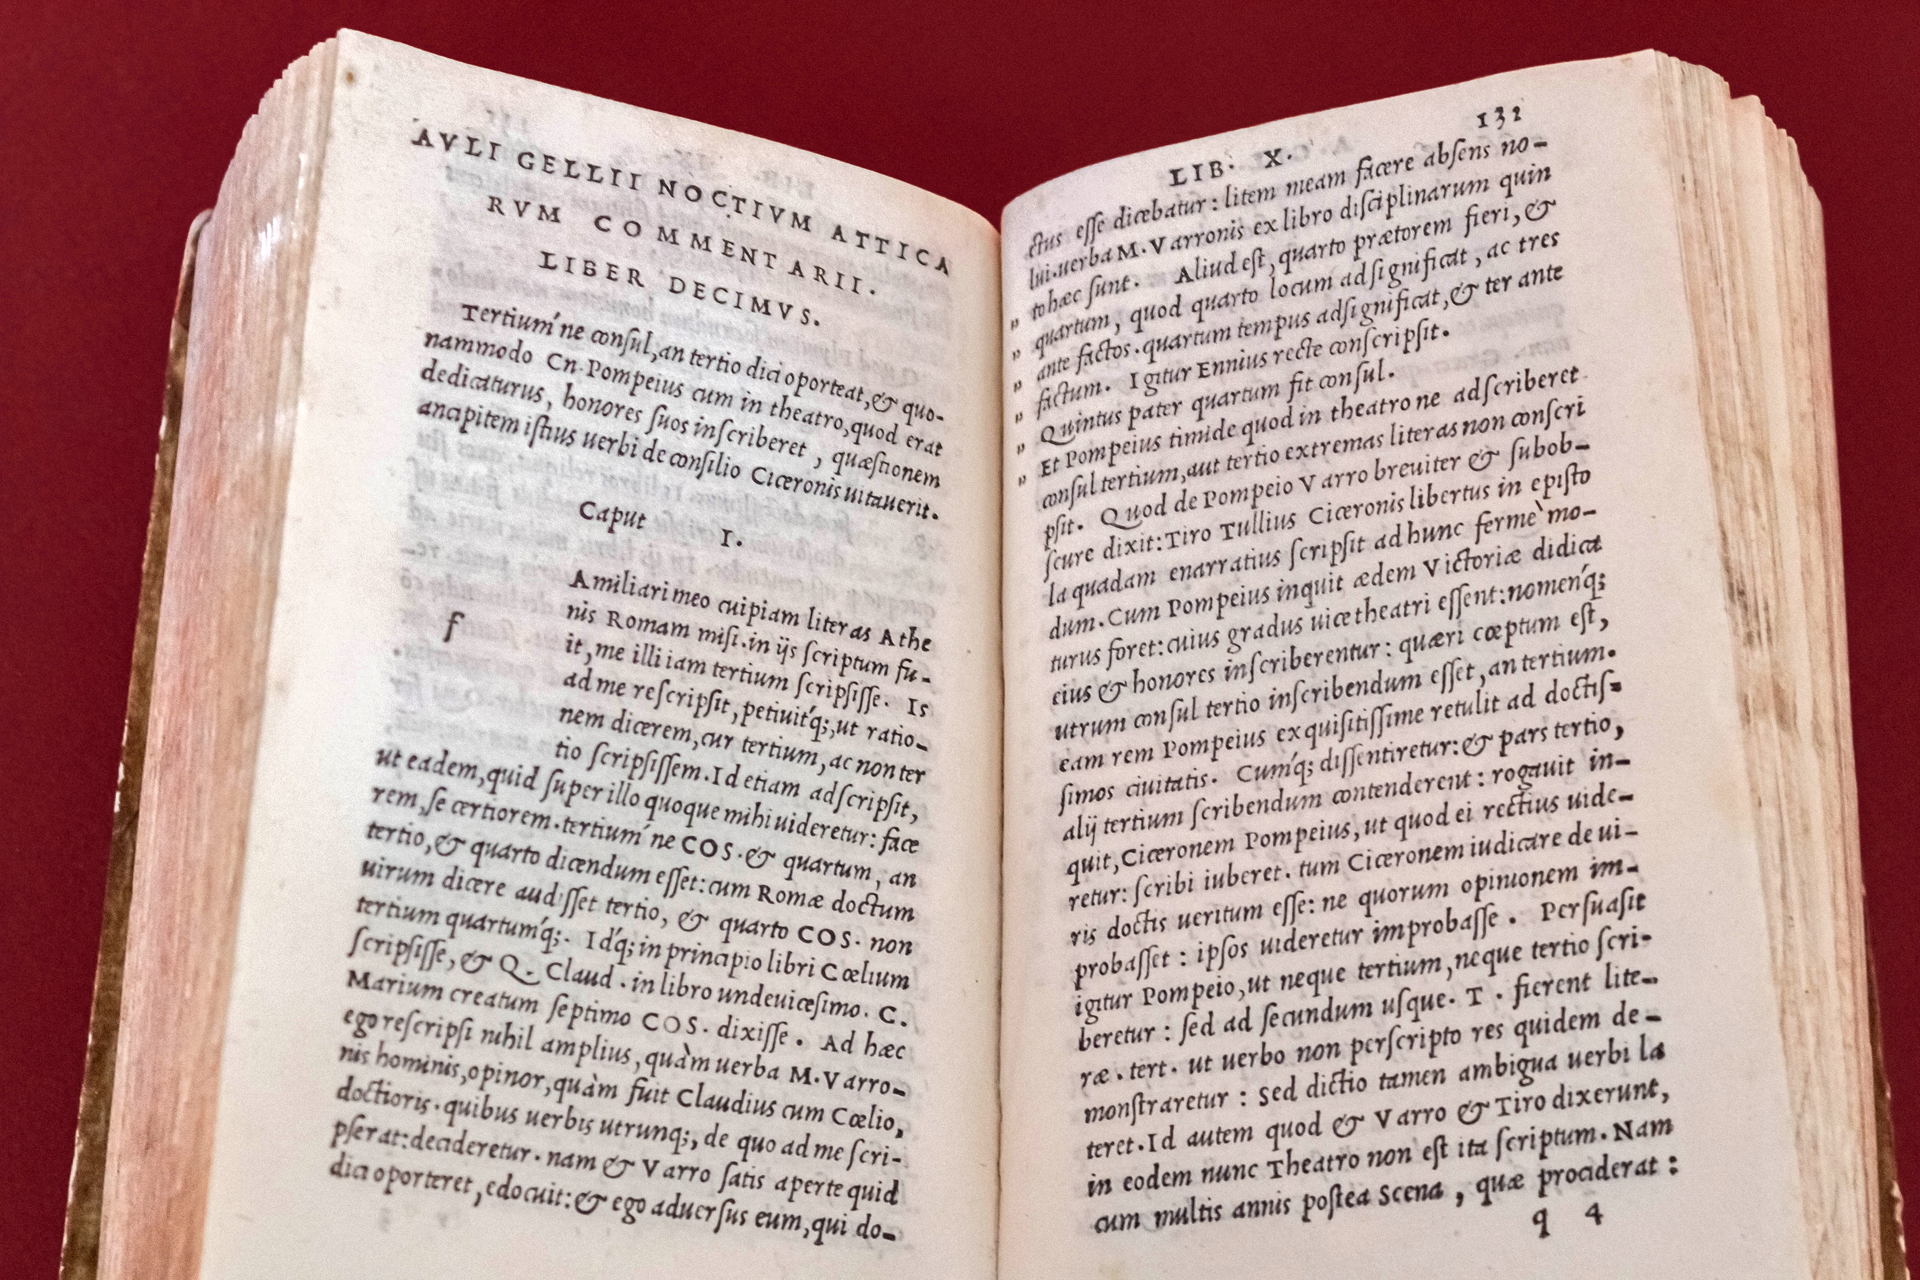 AVLI GELLII NOCTIVM ATTICA
RVM COMMENTARII.
LIBER DECIMVS.
Tertium'ne conſul,an tertio dici oporteat,& quo-
nammodo Cn·Pompeius cum in theatro,quod erat
dedicaturus, honores ſuos inſcriberet , quæſtionem
ancipitem iſtius uerbi de conſilio Ciceronis uitauerit.
Caput I.
f
Amiliari meo cuipiam literas Athe
nis Romam miſi.in ijs ſcriptum fu-
it,me illi iam tertium ſcripſiſſe. Is
ad me reſcripſit,petiuit'q;,ut ratio-
nem dicerem,cur tertium, ac non ter
tio ſcripſiſſem.Id etiam adſcripſit,
ut eadem,quid ſuper illo quoque mihi uideretur: face
rem,ſe certiorem.tertium'ne COS.& quartum, an
tertio,& quarto dicendum eſſet:cum Romæ doctum
uirum dicere audiſſet tertio, & quarto COS· non
tertium quartum'q;. Id'q; in principio libri Cœlium
ſcripſiſſe,& Q. Claud·in libro undeuiceſimo. C.
Marium creatum ſeptimo COS. dixiſſe. Ad hæc
ego reſcripſi nihil amplius,quàm uerba M.Varro-
nis hominis,opinor,quàm fuit Claudius cum Cœlio,
doctioris.quibus uerbis utrunq;, de quo ad me ſcri-
pſerat:decideretur.nam & Varro ſatis aperte quid
dici oporteret,edocuit:& ego aduerſus eum,qui do-
LIB. X. 132
ctus eſſe dicebatur: litem meam facere abſens no-
lui.uerba M.Varronis ex libro diſciplinarum quin
to hæc ſunt. Aliud eſt,quarto prætorem fieri,&
" quartum, quod quarto locum adſignificat, ac tres
" ante factos.quartum tempus adſignificat,& ter ante
" factum. Igitur Ennius recte conſcripſit.
" Quintus pater quartum fit conſul.
" Et Pompeius timide quod in theatro ne adſcriberet
" conſul tertium,aut tertio extremas literas non conſcri
pſit. Quod de Pompeio Varro breuiter & ſubob-
ſcure dixit:Tiro Tullius Ciceronis libertus in epiſto
la quadam enarratius ſcripſit ad hunc fermè mo-
dum.Cum Pompeius inquit ædem Victoriæ didica
turus foret:cuius gradus uice theatri eſſent:nomen'q;
eius & honores inſcriberentur: quæri cœptum eſt,
utrum conſul tertio inſcribendum eſſet,an tertium.
eam rem Pompeius exquiſitiſſime retulit ad doctiſ-
ſimos ciuitatis. Cum'q; diſſentiretur:& pars tertio,
alij tertium ſcribendum contenderent: rogauit in-
quit,Ciceronem Pompeius,ut quod ei rectius uide-
retur: ſcribi iuberet. tum Ciceronem iudicare de ui-
ris doctis ueritum eſſe: ne quorum opinionem im-
probaſſet : ipſos uideretur improbaſſe. Perſuaſit
igitur Pompeio,ut neque tertium,neque tertio ſcri-
beretur: ſed ad ſecundum uſque. T. fierent lite-
ræ.tert. ut uerbo non perſcripto res quidem de-
monſtraretur: Sed dictio tamen ambigua uerbi la
teret.Id autem quod & Varro & Tiro dixerunt,
in eodem nunc Theatro non eſt ita ſcriptum.Nam
cum multis annis poſtea Scena, quæ prociderat :
q 4